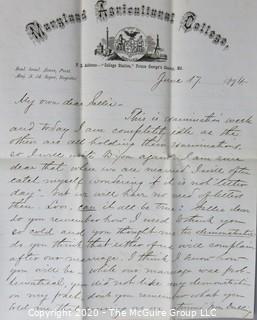 Maryland Agricultural College,
P. O. Address—"College Station," Prince George's County, Md.
June 17 1874
My own dear Sallie—
This is examination week
and today I am completely idle as the
others are all holding their examinations
so I will write to you again. I am sure
dear that when we are married I will often
catch myself wondering if it is not "letter
day" but we will have no need of letters
then. Love, can it all be true? Sallie dear
do you remember how I used to think you
so cold and you thought me to demonstrative
do you think that either of us will complain
after our marriage. I think I know how
you will be while our marriage was prob-
lematical, you did not like any demonstration
on my part, don't you remember what you
told
Copyright 2020 - The McGuire Group LLC